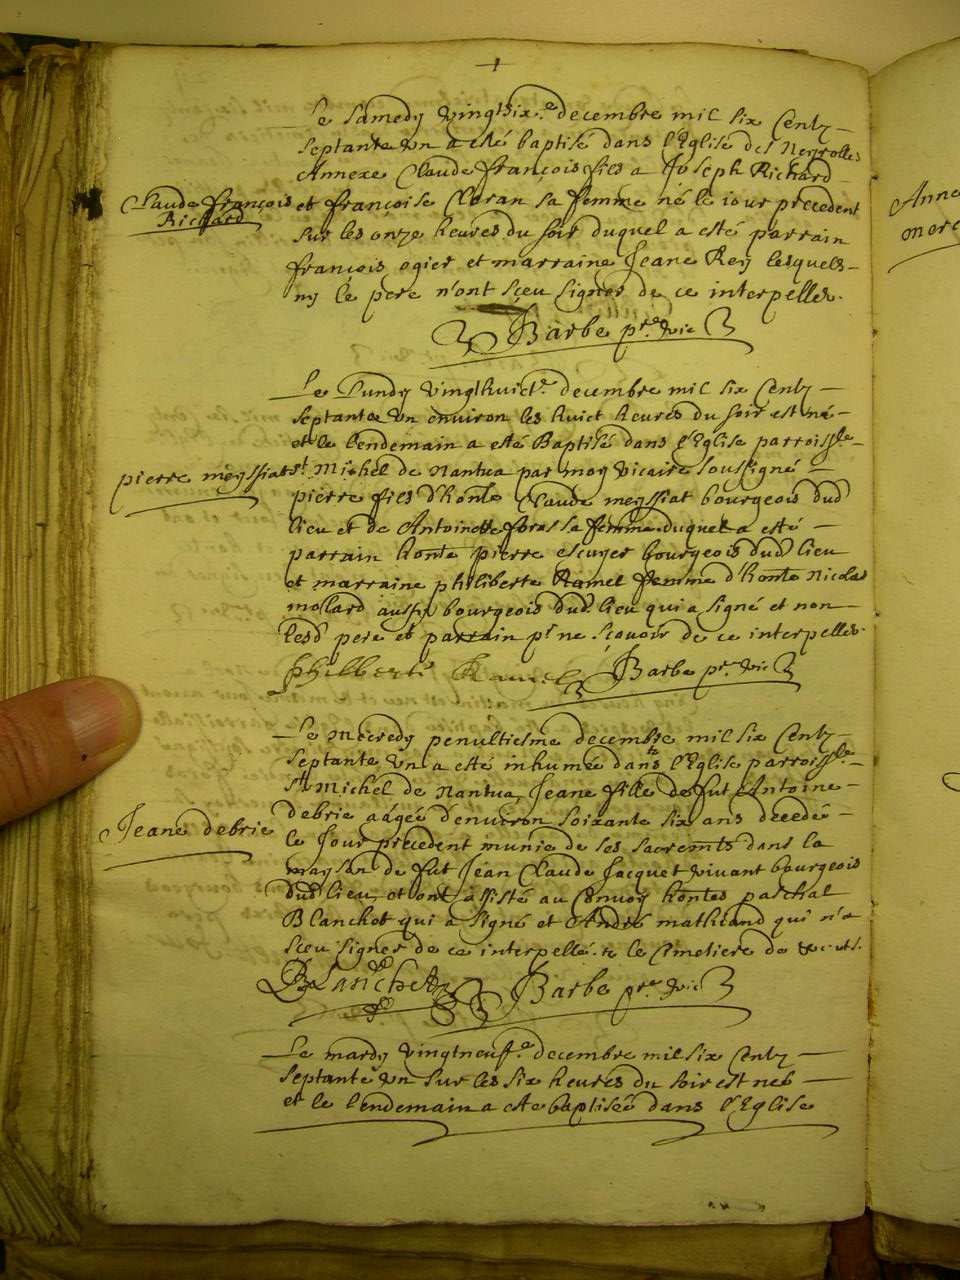 Le samedy vingtsixe decembre mil six centz
septante un a esté baptisé dans l'Eglise des Neyrolles
Annexe Claude françois fils a Joseph Richard
Claude françois
Richard
et françoise Cloran sa femme né le jour precedent
sur les onze heures du soir duquel a esté parrain
françois ogier et marraine Jeane Rey lesquels
ny le pere n'ont sçeu signer de ce interpellés.
Barbe pre vic
Le Lundy vingthuicte decembre mil six centz
septante un environ les huict heures du soir est né
et le lendemain a esté Baptisé dans l'Eglise parroisslle
pierre meyssiat
st Michel de Nantua par moy vicaire soussigné
pierre fils d'honble Claude meyssiat bourgeois dud
lieu et de Antoinette foras sa femme duquel a esté
parrain honble pierre escuyer bourgeois dud lieu
et marraine philiberte Ramel femme d'honble Nicolas
mollard aussy bourgeois dud lieu qui a signé et non
lesd pere et parrain pr ne sçavoir de ce interpellés.
philberte Ramel Barbe pre vic
Le mecredy penultiesme decembre mil six centz
septante un a esté inhumée dans l'Eglise parroisslle
St Michel de Nantua Jeane fille de fut Antoine
Jeane debrie
debrie aagée d'environ soixante six ans decedé
le jour precedent munie de ses sacremts dans la
mayson de fut Jean Claude Jacquet vivant bourgeois
dud lieu, et ont assisté au convoy honbles paschal
Blanchet qui a signé et André mathiand qui n'a
sçeu signer de ce interpellé. le Cimetiere de
Blanchet Barbe pre vic
Le mardy vingtneufe decembre mil six centz
septante un sur les six heures du soir est neé
et le lendemain a esté baptisée dans l'Eglise
Anne